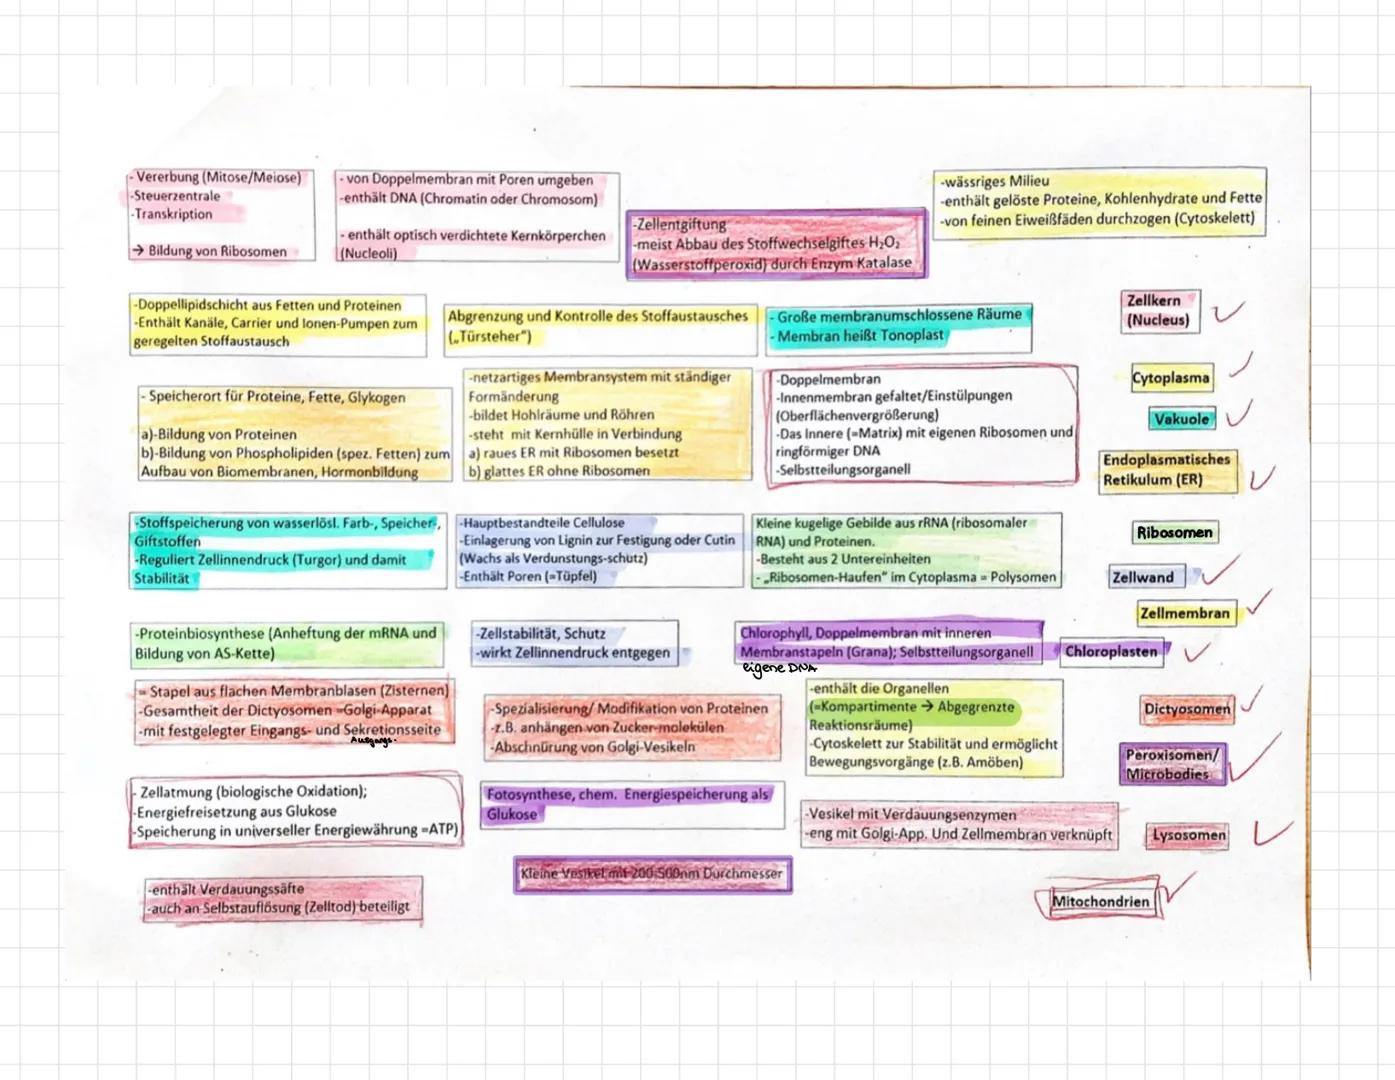 - Vererbung (Mitose/Meiose)
-Steuerzentrale
-Transkription
→ Bildung von Ribosomen
- von Doppelmembran mit Poren umgeben
-enthält DNA (Chromatin oder Chromosom)
- enthält optisch verdichtete Kernkörperchen
(Nucleoli)
-Zellentgiftung
-meist Abbau des Stoffwechselgiftes H₂O₂
(Wasserstoffperoxid) durch Enzym Katalase
-wässriges Milieu
-enthält gelöste Proteine, Kohlenhydrate und Fette
-von feinen Eiweißfäden durchzogen (Cytoskelett)
-Doppellipidschicht aus Fetten und Proteinen
-Enthält Kanäle, Carrier und Ionen-Pumpen zum
geregelten Stoffaustausch
Abgrenzung und Kontrolle des Stoffaustausches
(„Türsteher")
- Große membranumschlossene Räume
- Membran heißt Tonoplast
Zellkern
(Nucleus)
- Speicherort für Proteine, Fette, Glykogen
a)-Bildung von Proteinen
b)-Bildung von Phospholipiden (spez. Fetten) zum
Aufbau von Biomembranen, Hormonbildung
-netzartiges Membransystem mit ständiger
Formänderung
-bildet Hohlräume und Röhren
-steht mit Kernhülle in Verbindung
a) raues ER mit Ribosomen besetzt
b) glattes ER ohne Ribosomen
-Doppelmembran
-Innenmembran gefaltet/Einstülpungen
(Oberflächenvergrößerung)
-Das Innere (=Matrix) mit eigenen Ribosomen und
ringförmiger DNA
-Selbstteilungsorganell
Cytoplasma
Vakuole
Endoplasmatisches
Retikulum (ER)
-Stoffspeicherung von wasserlösl. Farb-, Speicher-,
Giftstoffen
-Reguliert Zellinnendruck (Turgor) und damit
Stabilität
-Hauptbestandteile Cellulose
-Einlagerung von Lignin zur Festigung oder Cutin
(Wachs als Verdunstungs-schutz)
-Enthält Poren (=Tüpfel)
Kleine kugelige Gebilde aus rRNA (ribosomaler
RNA) und Proteinen.
-Besteht aus 2 Untereinheiten
- „Ribosomen-Haufen" im Cytoplasma = Polysomen
Ribosomen
Zellwand
Zellmembran
-Proteinbiosynthese (Anheftung der mRNA und
Bildung von AS-Kette)
-Zellstabilität, Schutz
-wirkt Zellinnendruck entgegen
Chlorophyll, Doppelmembran mit inneren
Membranstapeln (Grana); Selbstteilungsorganell
eigene DNA
Chloroplasten
= Stapel aus flachen Membranblasen (Zisternen)
-Gesamtheit der Dictyosomen =Golgi-Apparat
-mit festgelegter Eingangs- und Sekretionsseite
Ausgangs-
-Spezialisierung/ Modifikation von Proteinen
-z.B. anhängen von Zucker-molekülen
-Abschnürung von Golgi-Vesikeln
-enthält die Organellen
(=Kompartimente → Abgegrenzte
Reaktionsräume)
-Cytoskelett zur Stabilität und ermöglicht
Bewegungsvorgänge (z.B. Amöben)
Dictyosomen
Peroxisomen/
Microbodies
- Zellatmung (biologische Oxidation);
-Energiefreisetzung aus Glukose
-Speicherung in universeller Energiewährung =ATP)
Fotosynthese, chem. Energiespeicherung als
Glukose
-Vesikel mit Verdauungsenzymen
-eng mit Golgi-App. Und Zellmembran verknüpft
Lysosomen
-enthält Verdauungssäfte
-auch an Selbstauflösung (Zelltod) beteiligt
Kleine Vesikel mit 200-500nm Durchmesser
Mitochondrien